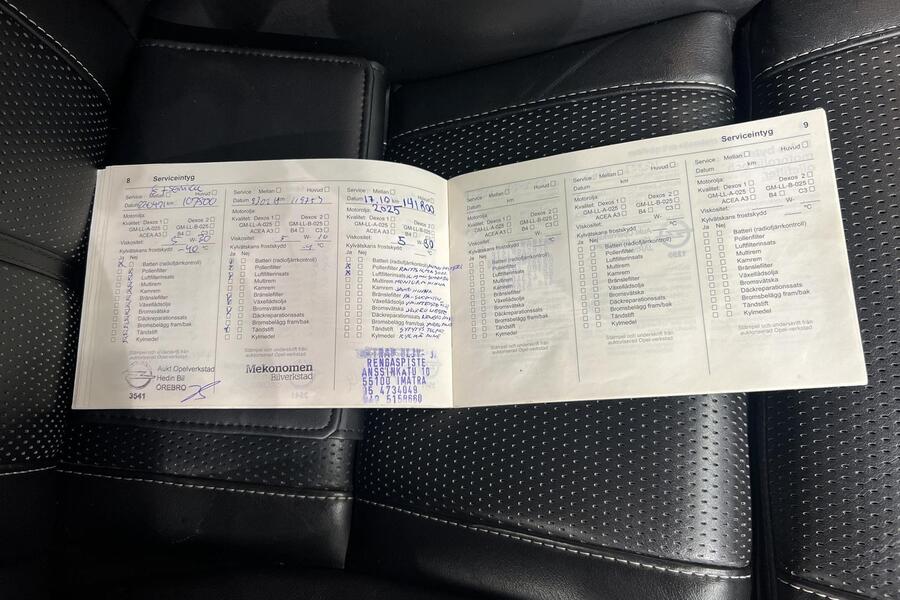 8 Serviceintyg
Service: Mellan Huvud
Datum km 107500
Motorolja:
Kvalitet: Dexos 1 Dexos 2
GM-LL-A-025 GM-LL-B-025
ACEA A3 B4 C3
Viskositet: 5 W- 30
Kylvätskans frostskydd -40 °C
Ja Nej
Batteri (radiofjärrkontroll)
Pollenfilter
Luftfilterinsats
Multirem
Kamrem
Bränslefilter
Växellådsolja
Bromsvätska
Däckreparationssats
Bromsbelägg fram/bak
Tändstift
Kylmedel
Stämpel och underskrift från
auktoriserad Opel-verkstad
Aukt Opelverkstad
Hedin Bil
ÖREBRO
3541
Service: Mellan Huvud
Datum km
Motorolja:
Kvalitet: Dexos 1 Dexos 2
GM-LL-A-025 GM-LL-B-025
ACEA A3 B4 C3
Viskositet: W-
Kylvätskans frostskydd °C
Ja Nej
Batteri (radiofjärrkontroll)
Pollenfilter
Luftfilterinsats
Multirem
Kamrem
Bränslefilter
Växellådsolja
Bromsvätska
Däckreparationssats
Bromsbelägg fram/bak
Tändstift
Kylmedel
Stämpel och underskrift från
auktoriserad Opel-verkstad
Mekonomen
Bilverkstad
Service: Mellan Huvud
Datum 17.10 km 141800
Motorolja: 2025
Kvalitet: Dexos 1 Dexos 2
GM-LL-A-025 GM-LL-B-025
ACEA A3 B4 C3
Viskositet: 5 W- 30
Kylvätskans frostskydd °C
Ja Nej
Batteri (radiofjärrkontroll)
Pollenfilter
Luftfilterinsats
Multirem
Kamrem
Bränslefilter
Växellådsolja
Bromsvätska
Däckreparationssats
Bromsbelägg fram/bak
Tändstift
Kylmedel
RENGASPISTE
ANSSINKATU 10
55100 IMATRA
05 4734049
040 5158660
Serviceintyg 9
Service: Mellan Huvud
Datum km
Motorolja:
Kvalitet: Dexos 1 Dexos 2
GM-LL-A-025 GM-LL-B-025
ACEA A3 B4 C3
Viskositet: W-
Kylvätskans frostskydd °C
Ja Nej
Batteri (radiofjärrkontroll)
Pollenfilter
Luftfilterinsats
Multirem
Kamrem
Bränslefilter
Växellådsolja
Bromsvätska
Däckreparationssats
Bromsbelägg fram/bak
Tändstift
Kylmedel
Stämpel och underskrift från
auktoriserad Opel-verkstad
Service: Mellan Huvud
Datum km
Motorolja:
Kvalitet: Dexos 1 Dexos 2
GM-LL-A-025 GM-LL-B-025
ACEA A3 B4 C3
Viskositet: W-
Kylvätskans frostskydd °C
Ja Nej
Batteri (radiofjärrkontroll)
Pollenfilter
Luftfilterinsats
Multirem
Kamrem
Bränslefilter
Växellådsolja
Bromsvätska
Däckreparationssats
Bromsbelägg fram/bak
Tändstift
Kylmedel
Stämpel och underskrift från
auktoriserad Opel-verkstad
Service: Mellan Huvud
Datum km
Motorolja:
Kvalitet: Dexos 1 Dexos 2
GM-LL-A-025 GM-LL-B-025
ACEA A3 B4 C3
Viskositet: W-
Kylvätskans frostskydd °C
Ja Nej
Batteri (radiofjärrkontroll)
Pollenfilter
Luftfilterinsats
Multirem
Kamrem
Bränslefilter
Växellådsolja
Bromsvätska
Däckreparationssats
Bromsbelägg fram/bak
Tändstift
Kylmedel
Stämpel och underskrift från
auktoriserad Opel-verkstad